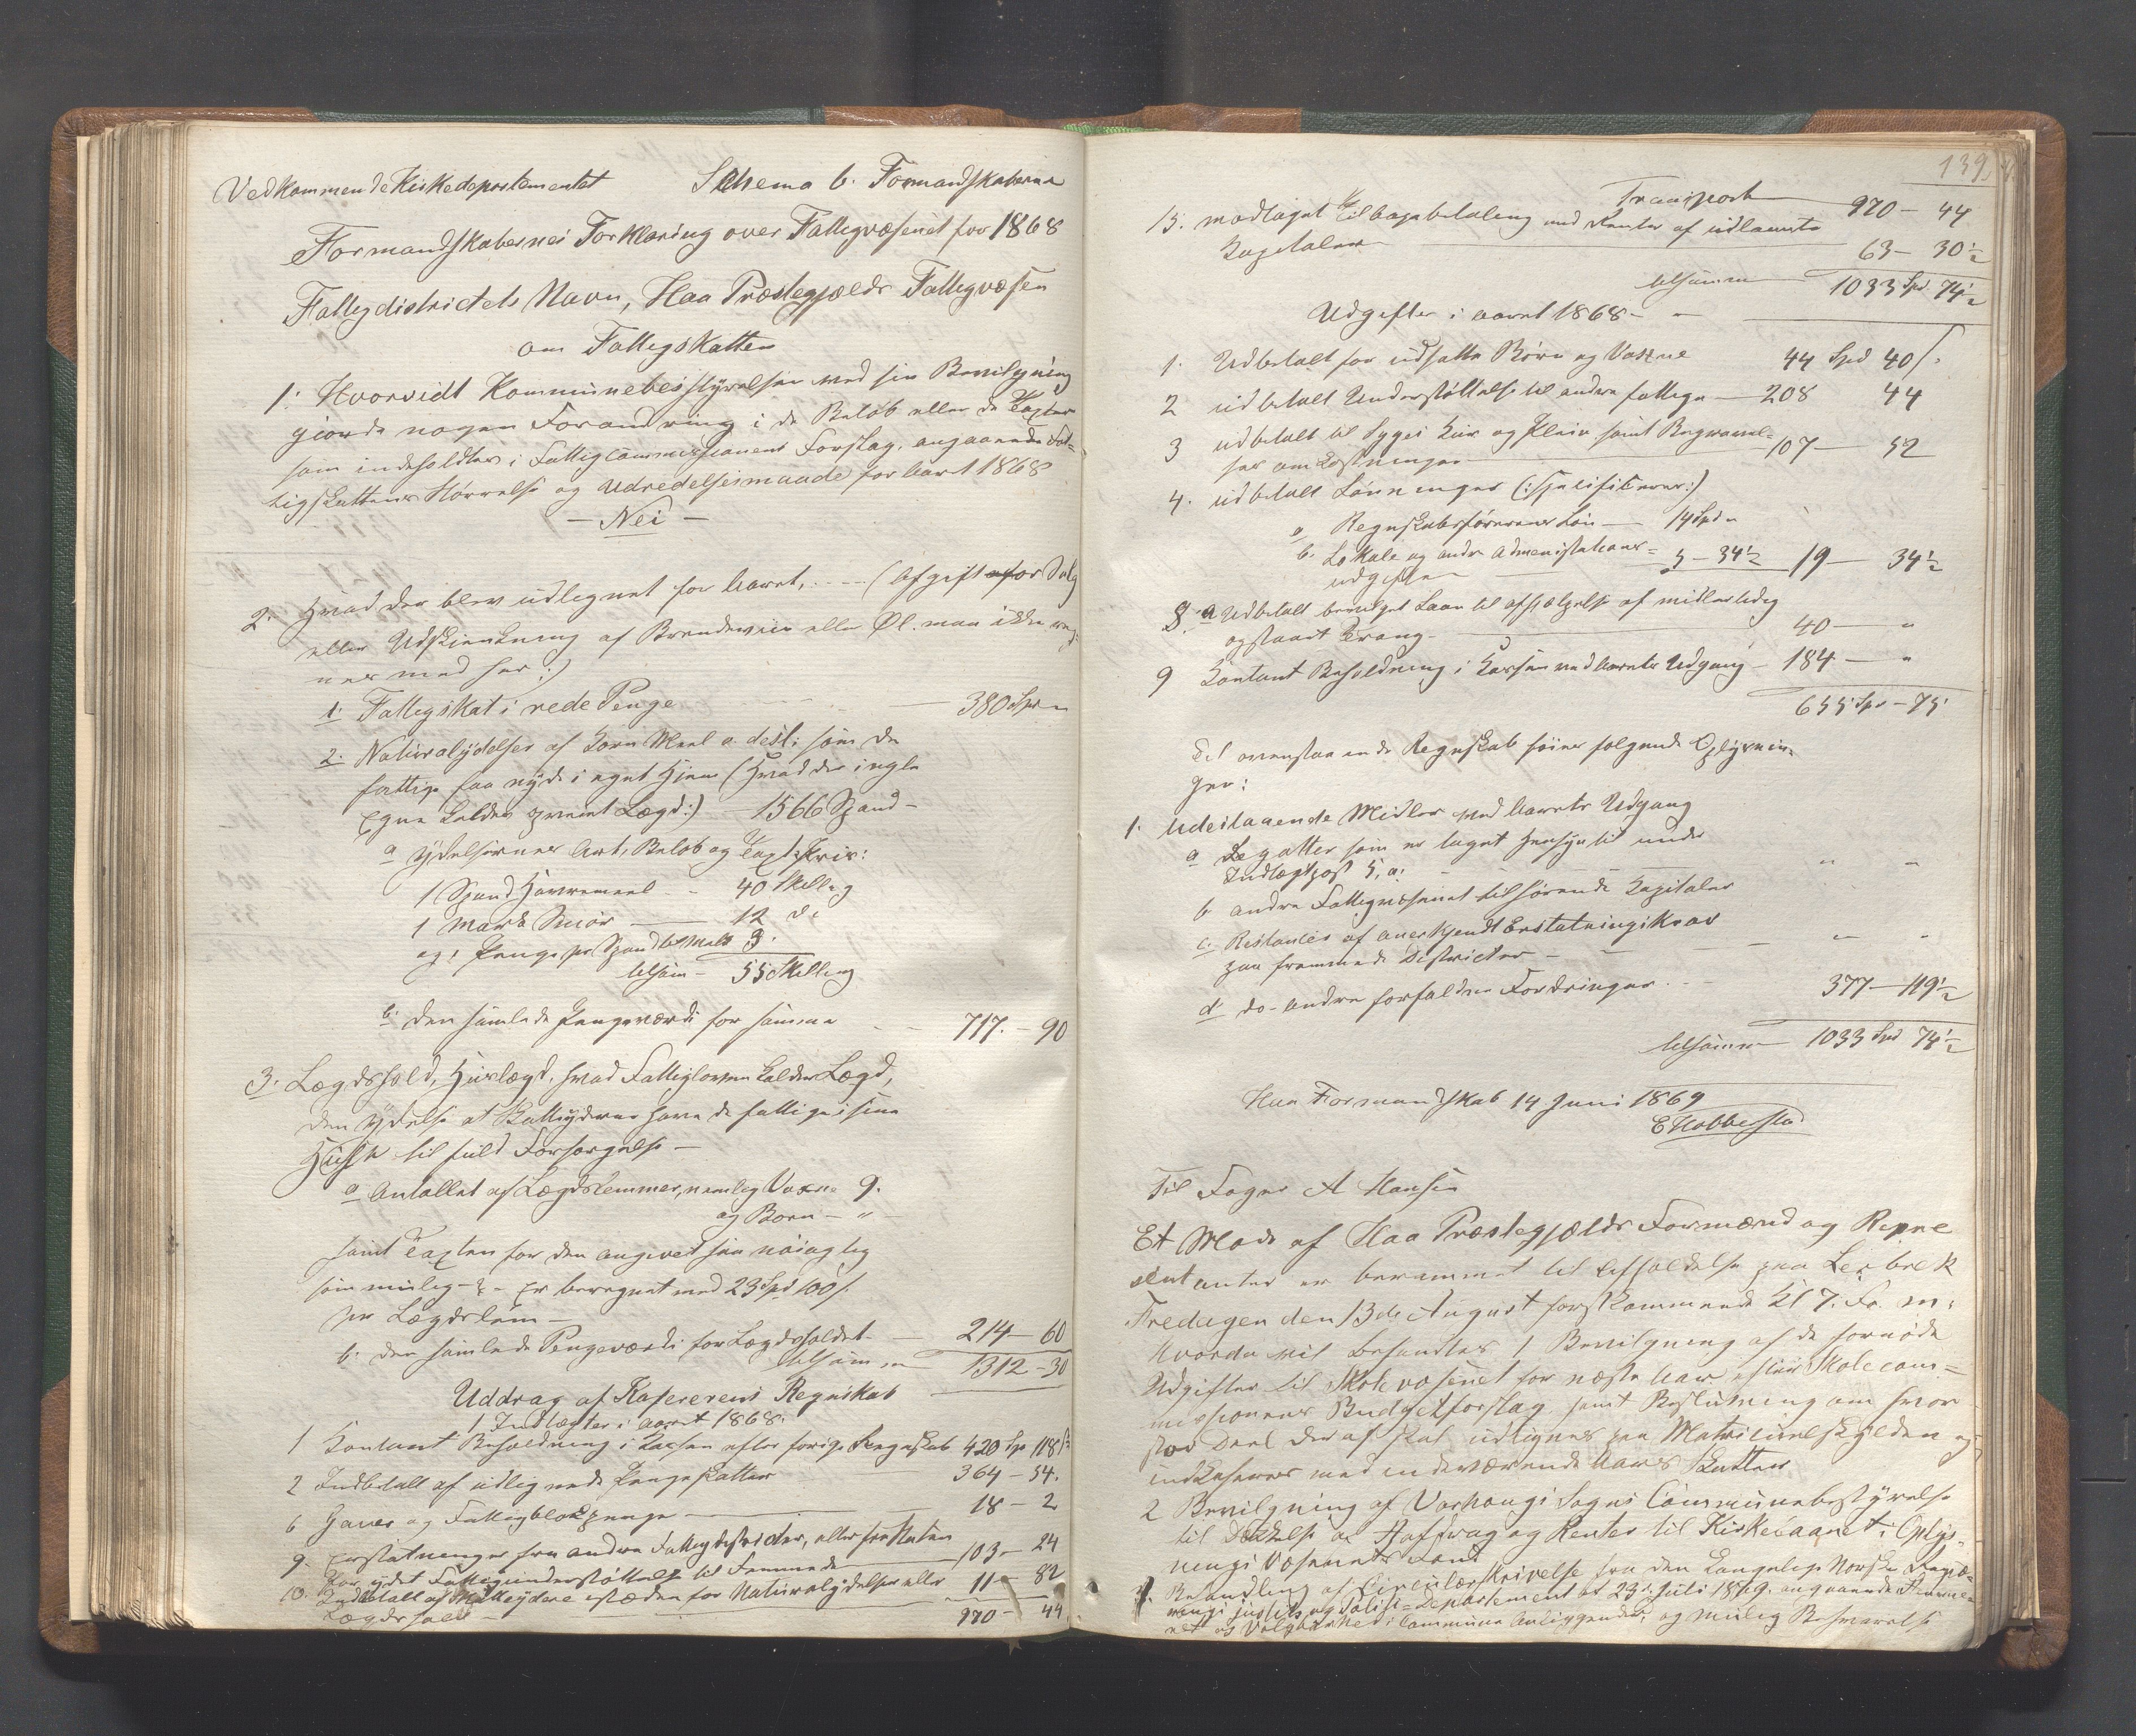 Vedkommende Kirkedepartementet Schema b. Formandskaberne
Formandskabernes Forklaring over Fattigvæsenet for 1868
Fattigdistrictets Navn, Haa Præstegjælds Fattigvæsen
om Fattigskatten
1. Hvorvidt Kommunebestyrelsen ved sin Bevilgning
gjorde nogen Forandring i de Beløb eller de Taxter
som indeholdtes i Fattigcommissionens Forslag, angaaende Fat-
tigskattens Størrelse og Udredelsesmaade for Aaret 1868
- Nei -
2. Hvad der blev udlignet for Aaret, ---- (Afgift for Salg
eller Udskjenkning af Brendeviin eller Øl. maa ikke reg-
nes med her :)
1. Fattigskat i rede Penge 380 Spd "
2. Naturalydelser af Korn Meel o. desl: som de
fattige faa nyde i eget Hjem (Hvad der i nogle
Egne kaldes Lægd:) - 1566 Spand -
a Ydelsernes Art, Beløb og Taxt
1 Spand Havremeel - 40 Skilling
1 Mark Smør 12 do
og i Penge pr Spand 3.
tilsam - 55 Skilling
b. den samlede Pengeværdi for samme - 717. - 90
3. Lægdshold, Huuslægd, hvad Fattigloven kalder Lægd,
den Ydelse at Skatteyderne have de fattige i sine
Huse til fuld Forsørgelse -
a Antallet af Lægdslemmer, nemlig Voxne 9.
og Børn - "
samt Taxten for den angivet saa nøiagtig
som mulig - Er beregnet med 23 Spd 100 s.
pr Lægdslem -
b. den samlede Pengeværdi for Lægdsholdet - 214 - 60
tilsammen 1312 - 30
Uddrag af Kasererens Regnskab
1 Indtægter i aaret 1868:
1 Contant Beholdning i Kassen efter forrige Regnskab 420 Sp 118 s
2 Indbetalt af udlignede Pengeskatter 364 - 54.
6 Gaver og Fattigblokpenge 18 - 2
9. Erstatninger fra andre Fattigdistricter, eller fra Staten
for ydet Fattigunderstøttelse til Fremmede 103 - 24
10. Indbetalt af Skatteydere istæden for Naturalydelser eller 11 - 82
Lægdshold - 970 - 44
139
Transport 970 - 44
15. modtaget Tilbagebetaling med Renter af udlaante
Kapitaler 63 - 30½
tilsammen 1033 Spd 74½
Udgifter i aaret 1868 - -
1. Udbetalt for udsatte Børn og Voxne 44 Spd 40 s.
2 udbetalt Understøttelse til andre fattige - 208 44
3 udbetalt til Syges Kur og Pleie samt Begravel-
ses omkostninger 107 - 52
4. udbetalt Lønninger (: specificeres :)
a Regnskabsførerens Løn - 14 Spd "
b. Lokale og andre Administrations- 5 - 34½ 19 - 34½
udgifter
8. a Udbetalt bevilget Laan til afhjælpelse af midlertidig
opstaaet Trang - 40 - "
9 Contant Beholdning i Kassen ved Aarets Udgang - 184 - "
655 Spd - 75
Til ovenstaaende Regnskab føies følgende Oplysnin-
ger:
1. Udestaaende Midler ved Aarets Udgang
a Legatter som er taget Hensyn til under
Indtægtpost 5, a: " "
b andre Fattigvæsenet tilhørende Kapitaler
c. Restancer af anerkjendt Erstatningskrav
paa fremmede Districter - " "
d do andre forfaldne Fordringer - - 377 - 119½
tilsammen 1033 Spd 74½
Haa Formandskab 14 Juni 1869
E Nobbestad
Til Foged A Hansen
Et Møde af Haa Præstegjælds Formænd og Repræ
sentanter er berammet til Afholdelse paa Leirbrek
Fredagen den 13de August førstkommende Kl 7. Fr. m.
Hvorda vil behandles 1 Bevilgning af de fornødne
Udgifter til Skolevæsenet for næste Aar efter Skolecom-
missionens Budgetforslag samt Beslutning om hvor
stor Deel deraf skal udlignes paa Matriculskylden og
indkasseres med indeværende Aars Skatter
2 Bevilgning af Varhougs Sogns Communebestyrelse
til Dækkelse af Afdrag og Renter til Kirkelaanet i Oplys-
nings Væsenets Fond
3. Behandling af Circulærskrivelse fra den Kongelige Norske Regje-
rings Justits og Politi-Departement af 23de Juli 1869. angaaende Stemme-
ret og Valgbarhed i Commune Anliggender, og mulig Besvarelse